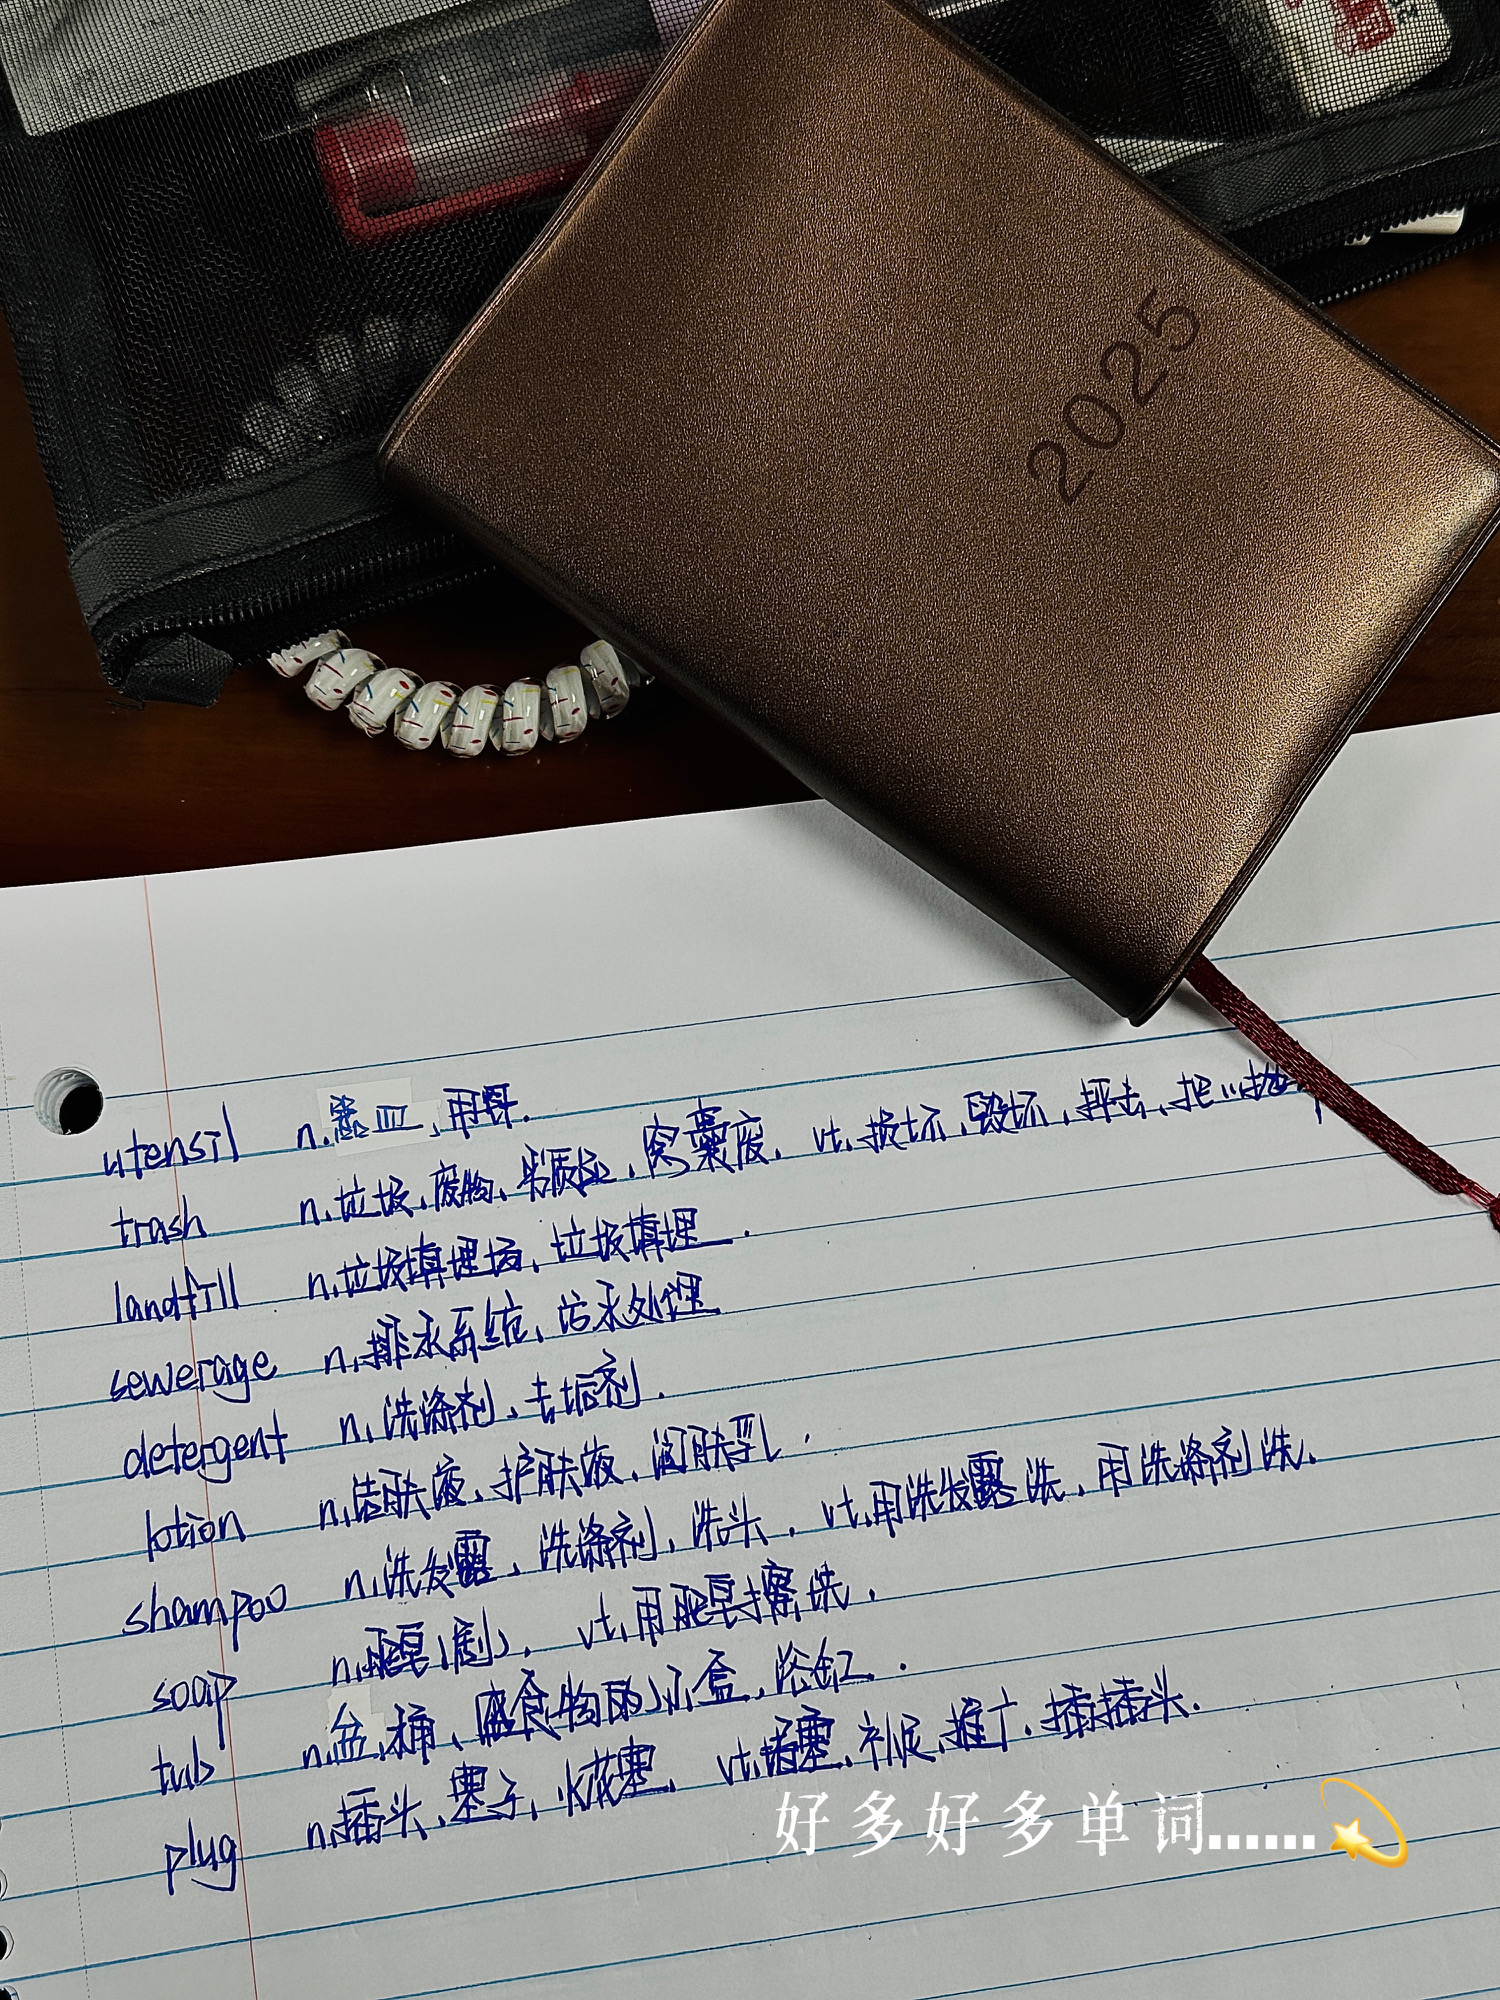 2025
utensil n. 器皿、用具.
trash n. 垃圾、废物、劣质品、窝囊废. vt. 损坏、毁坏、抨击、把…抛
landfill n. 垃圾填埋场、垃圾填埋.
sewerage n. 排水系统、污水处理
detergent n. 洗涤剂、去垢剂.
lotion n. 洁肤液、护肤液、润肤乳.
shampoo n. 洗发露、洗涤剂、洗头. vt. 用洗发露洗、用洗涤剂洗.
soap n. 肥皂(剧). vt. 用肥皂擦洗.
tub n. 盆、桶、盛食物的小盒、浴缸.
plug n. 插头、塞子、火花塞. vt. 堵塞、补足、推广、插插头.
好多好多单词......